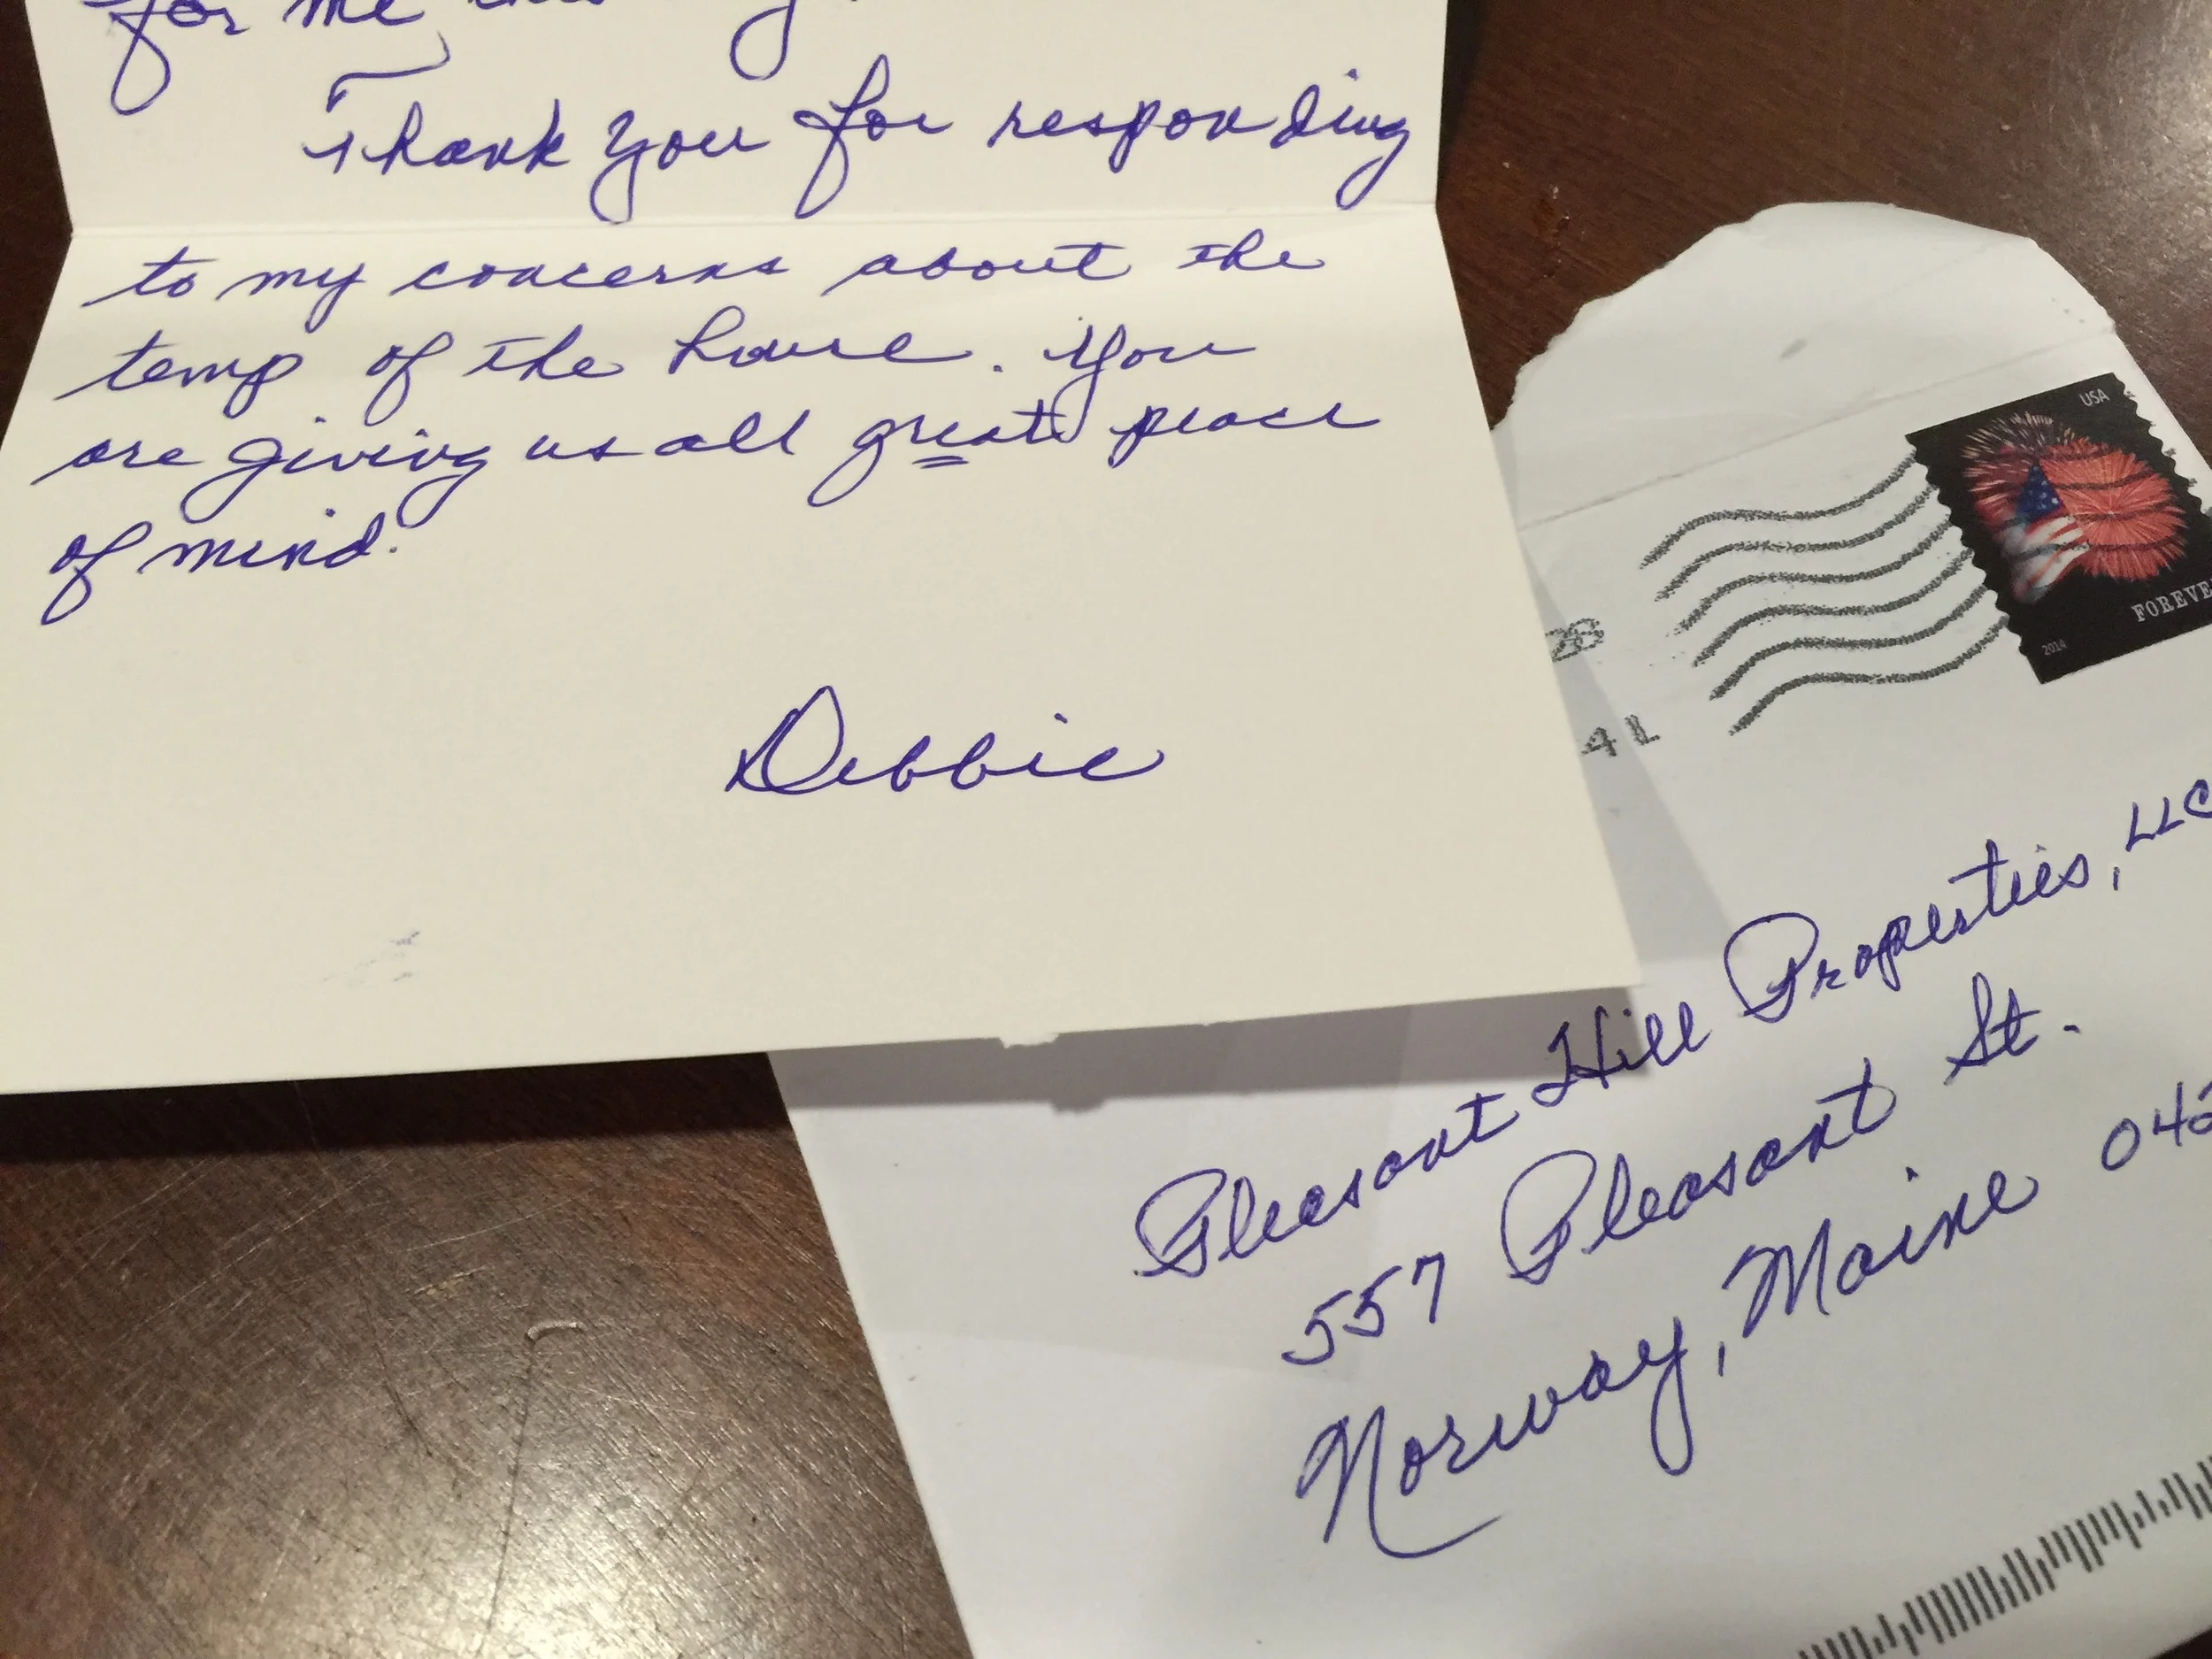 for me
Thank you for responding
to my concerns about the
temp of the house. You
are giving us all great peace
of mind.
Debbie
USA
FOREVE
2014
4L
Pleasant Hill Properties, LLC
557 Pleasant St.
Norway, Maine 042